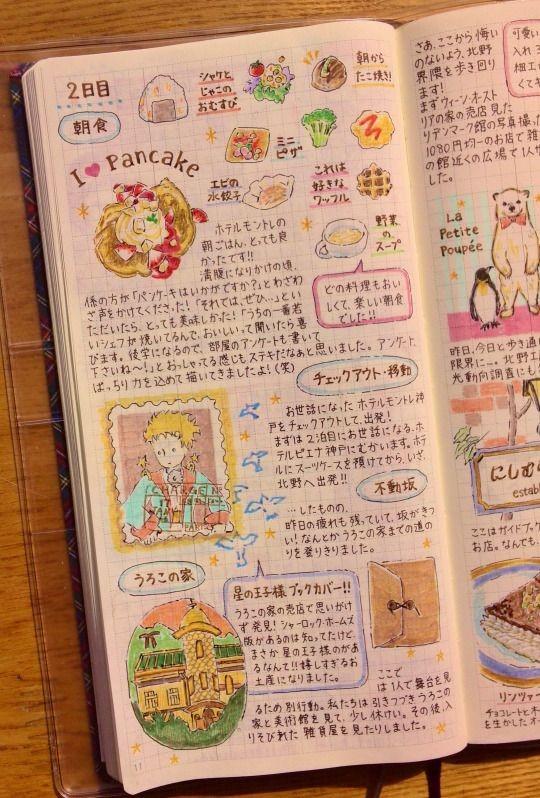 2日目
朝食
シャケと
じゃこの
おむすび
朝から
たこ焼き!
ミニ
ピザ
I ♥ Pancake
エビの
水餃子
これは
好きな
ワッフル
野菜
の
スープ
ホテルモントレの
朝ごはん、とっても良
かったです!!
満腹になりかけの頃、
係の方が「パンケーキはいかがですか?」とわざわ
ざ声をかけてくださった!「それでは、ぜひ…」といい
ただいたら、とっても美味しかった!「うちの一番若
いシェフが焼いてるんで、おいしいって聞いたら喜
びます。後学になるので、部屋のアンケートも書いて
下さいね〜!」とおっしゃってる感じもステキだなぁと思いました。アンケート、
ばっちり力を込めて描いてきましたよ!(笑)
どの料理もおい
しくて、楽しい朝食
でした!!
チェックアウト・移動
お世話になったホテルモントレ神
戸をチェックアウトして、出発!
まずは2泊目にお世話になる、ホ
テルピエナ神戸にむかいます。ホテ
ルにスーツケースを預けてから、いざ、
北野へ出発!!
不動坂
…したものの、
昨日の疲れも残っていて、坂がきつ
い!なんとかうろこの家までの道の
りを登りきりました。
うろこの家
星の王子様ブックカバー!!
うろこの家の売店で思いがけ
ず発見!シャーロック・ホームズ
版があるのは知ってたけど、
まさか星の王子様のがあ
るなんて!!嬉しすぎるお
土産になりました。
ここで
は1人で舞台を見
るため別行動。私たちは引きつづきうろこの
家と美術館を見て、少し休けい。その後、入
りそびれた雑貨屋を見たりしました。
11
さあ、ここから悔い
のないよう、北野
界隈を歩き回り
ます!
まずウィーン・オースト
リアの家の売店見た
りデンマーク館の写真撮っ
1080円均一のお店で雑
の館近くの広場で1人
した。
可愛い
入れ
細工
くてキ
La
Petite
Poupée
昨日、今日と歩き通
限界に…。北野工
光動向調査にも
にしむら
establ
ここはガイドブック
お店。なんでも、
リンツァー
チョコレートとオ
を生かしたオー